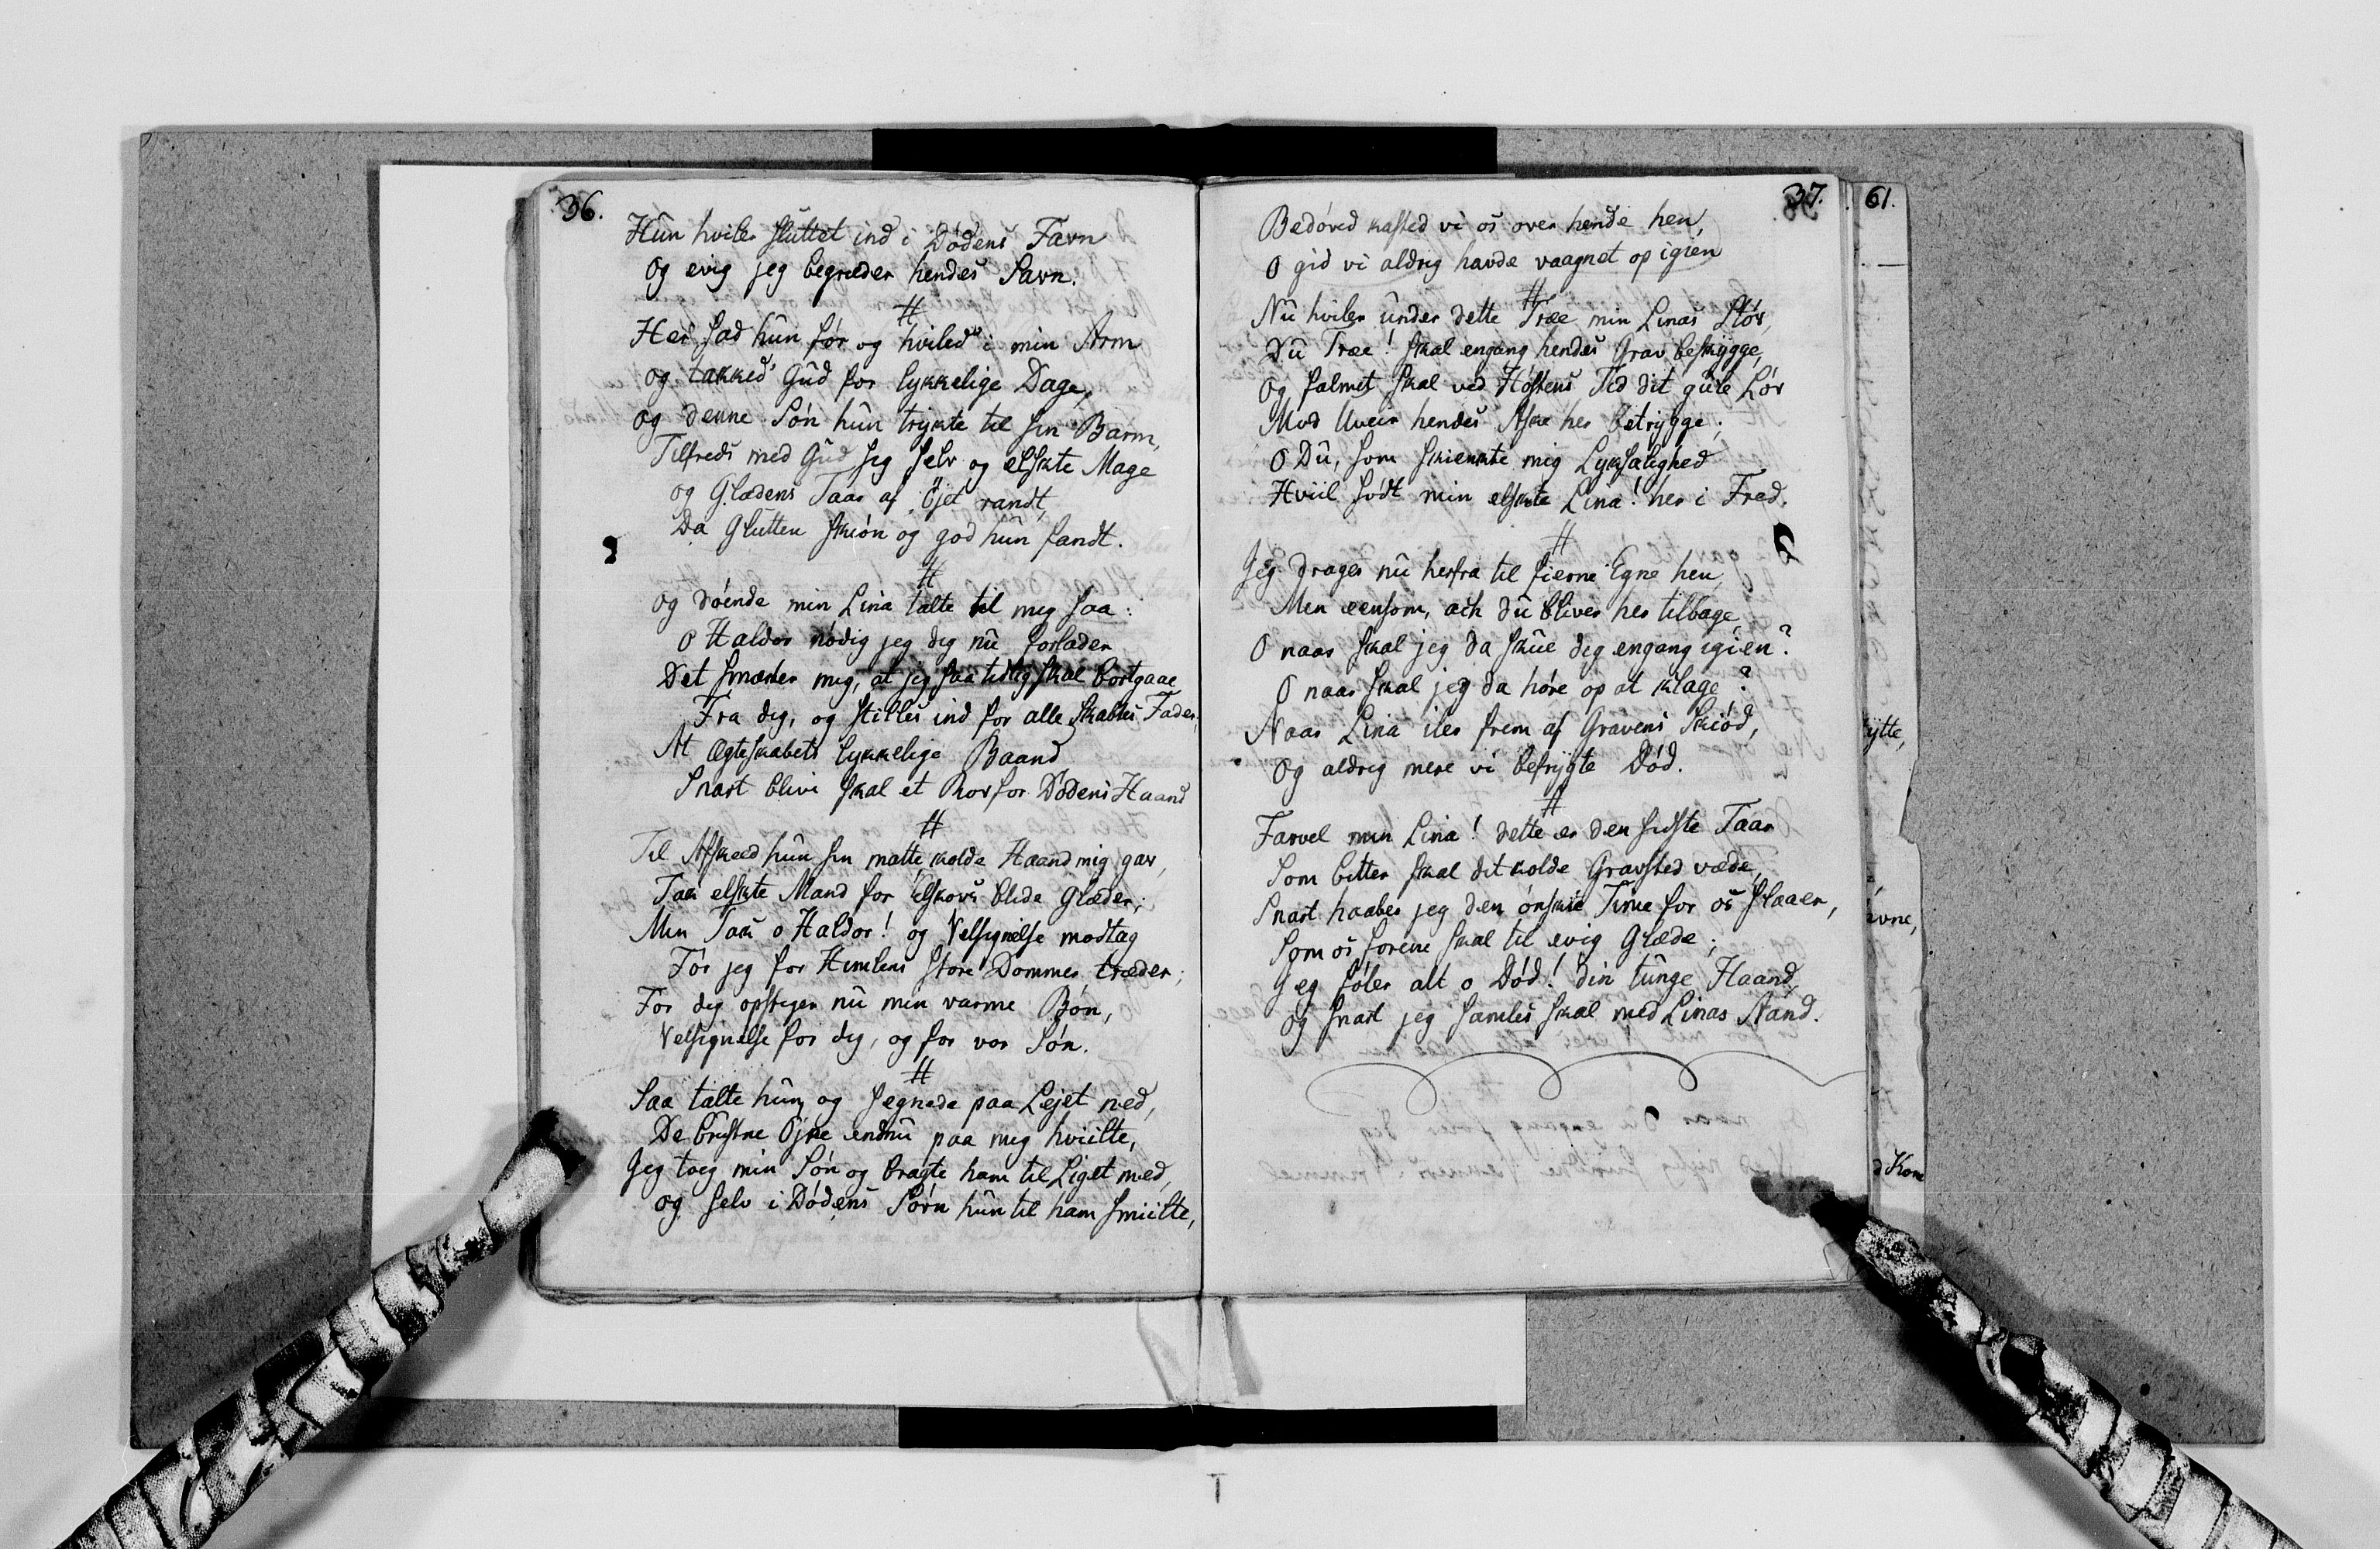 36.
Hun hviler sluttet ind i Dødens Favn
og evig jeg begræder hendes Savn.
#
Her sad hun før og hviled' i min Arm
og takked' Gud for lykkelige Dage,
og denne Søn hun trykte til sin Barm,
Tilfreds med Gud sig selv og elskte Mage
og Glædens Taar af Öjet randt,
Da Glutten skiøn og god hun fandt.
#
og døende min Lina talte til mig saa:
O Haldor nødig jeg dig nu forlader
Det smærter mig, at jeg saa tidlig skal bortgaae
Fra dig, og stilles ind for alle Skabtes Fader,
At Ægteskabets lykkelige Baand
Snart blive skal et Rov for Dødens Haand
#
Til Afskeed hun sin matte kolde Haand mig gav,
Tak elskte Mand for Elskovs blide Glæder;
Min Tak o Haldor! og Velsignelse modtag
Før jeg for Himlens store Dommer træder;
For dig opstiger nu min varme Bøn,
Velsignelse for dig, og for vor Søn.
#
Saa talte hun og segnede paa Lejet ned,
De brustne Öjne endnu paa mig hviilte,
Jeg tog min Søn og bragte ham til Liget med,
og selv i Dødens Søvn hun til ham smiilte,
37.
Bedøved kasted vi os over hende hen,
O gid vi aldrig havde vaagnet op igien
#
Nu hviler under dette Træe min Linas Støv,
Du Træe! skal engang hendes Grav beskygge,
og falmet skal ved Høstens Tid dit gule Løv
Mod Uveir hendes Aske her betrygge;
O Du, som skienkte mig Lyksalighed
Hviil södt min elskte Lina! her i Fred.
#
Jeg drager nu herfra til fierne Egne hen
Men eensom, ach du bliver her tilbage,
O naar skal jeg da skue dig engang igien?
O naar skal jeg da høre op at klage?
Naar Lina iler frem af Gravens Skiød,
og aldrig mere vi befrygte Død.
#
Farvel min Lina! dette er den sidste Taar
Som bitter skal dit kolde Gravsted væde,
Snart haaber jeg den ønskte Time for os slaaer,
Som os forene skal til evig Glæde;
Jeg føler alt o Død! din tunge Haand,
og snart jeg samles skal med Linas Aand.
61.
ytte,
vne,
d Kom